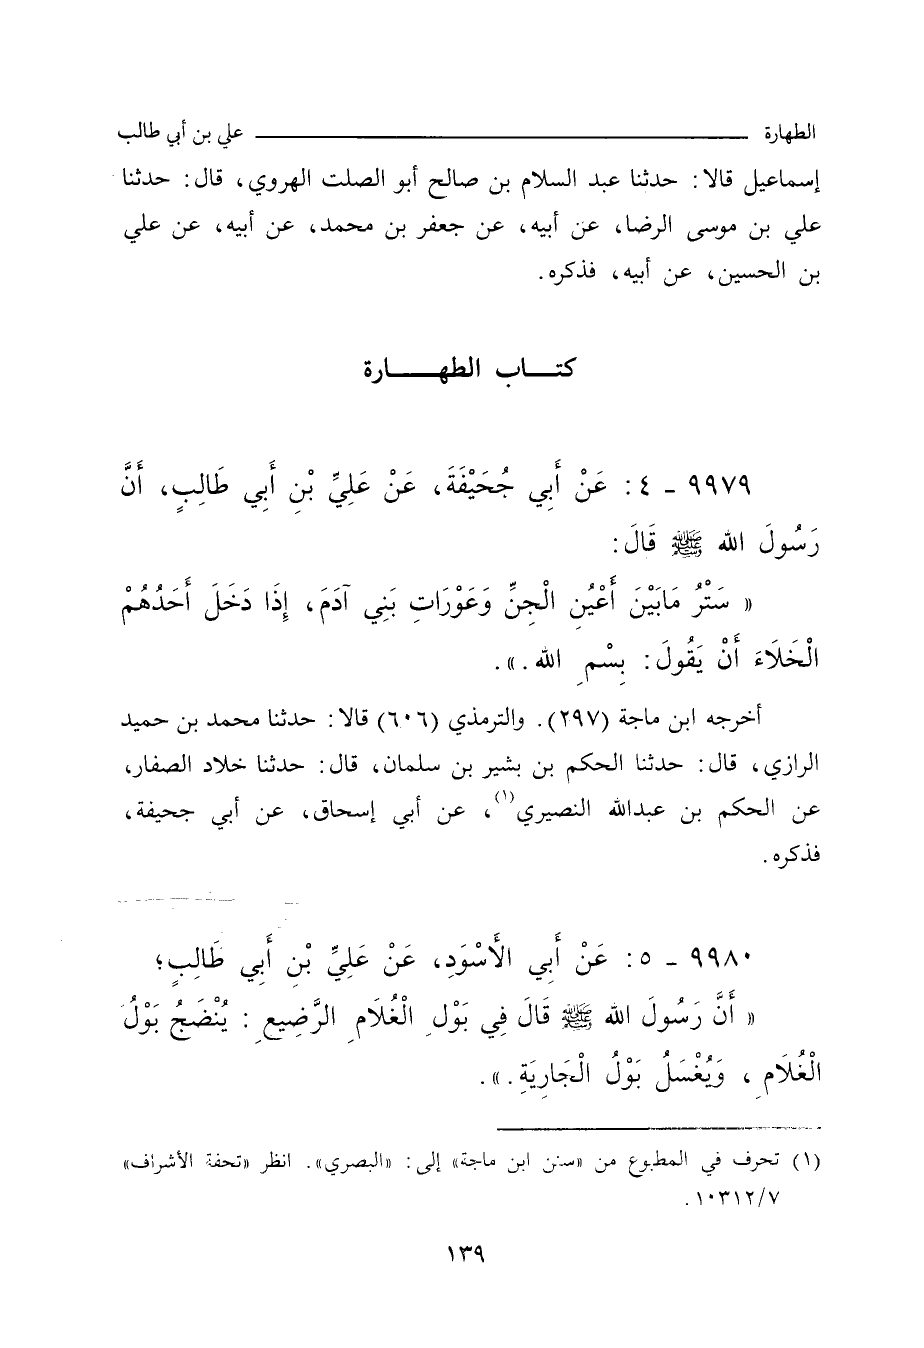 الطهارة علي بن أبي طالب
إسماعيل قالا: حدثنا عبد السلام بن صالح أبو الصلت الهروي، قال: حدثنا
علي بن موسى الرضا، عن أبيه، عن جعفر بن محمد، عن أبيه، عن علي
بن الحسين، عن أبيه، فذكره.
كتـــاب الطهـــارة
٩٩٧٩ - ٤: عَنْ أَبِي جُحَيْفَةَ، عَنْ عَلِيِّ بْنِ أَبِي طَالِبٍ، أَنَّ
رَسُولَ الله ﷺ قَالَ:
« سَتْرُ مَابَيْنَ أَعْيُنِ الْجِنِّ وَعَوْرَاتِ بَنِي آدَمَ، إِذَا دَخَلَ أَحَدُهُمْ
الْخَلَاءَ أَنْ يَقُولَ: بِسْمِ الله.».
أخرجه ابن ماجة (٢٩٧). والترمذي (٦٠٦) قالا: حدثنا محمد بن حميد
الرازي، قال: حدثنا الحكم بن بشير بن سلمان، قال: حدثنا خلاد الصفار،
عن الحكم بن عبدالله النصيري(١)، عن أبي إسحاق، عن أبي جحيفة،
فذكره.
٩٩٨٠ - ٥: عَنْ أَبِي الأَسْوَدِ، عَنْ عَلِيِّ بْنِ أَبِي طَالِبٍ؛
« أَنَّ رَسُولَ الله ﷺ قَالَ فِي بَوْلِ الْغُلَامِ الرَّضِيعِ: يُنْضَحُ بَوْلُ
الْغُلَامِ، وَيُغْسَلُ بَوْلُ الْجَارِيَةِ.».
(١) تحرف في المطبوع من «سنن ابن ماجة» إلى: «البصري». انظر «تحفة الأشراف»
١٠٣١٢/٧.
١٣٩